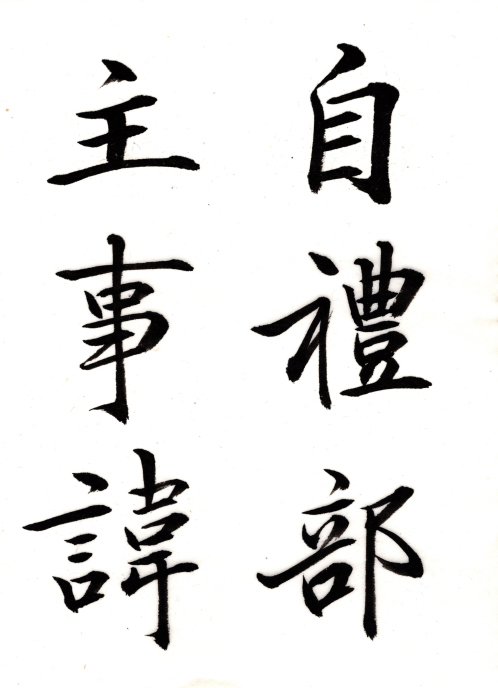 自禮部
主事諱